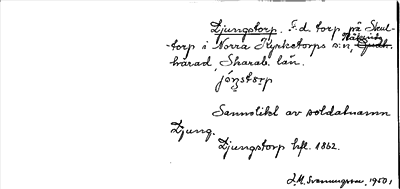 Ljungstorp. F.d. torp på Skul-
torp i Norra Kyrketorps s:n, Kåkinds
härad, Skarab. län.
jónstɔrp
Sannolikt av soldatnamn
Ljung.
Ljungstorp hfl. 1862.
J.M. Svennungsson, 1950.